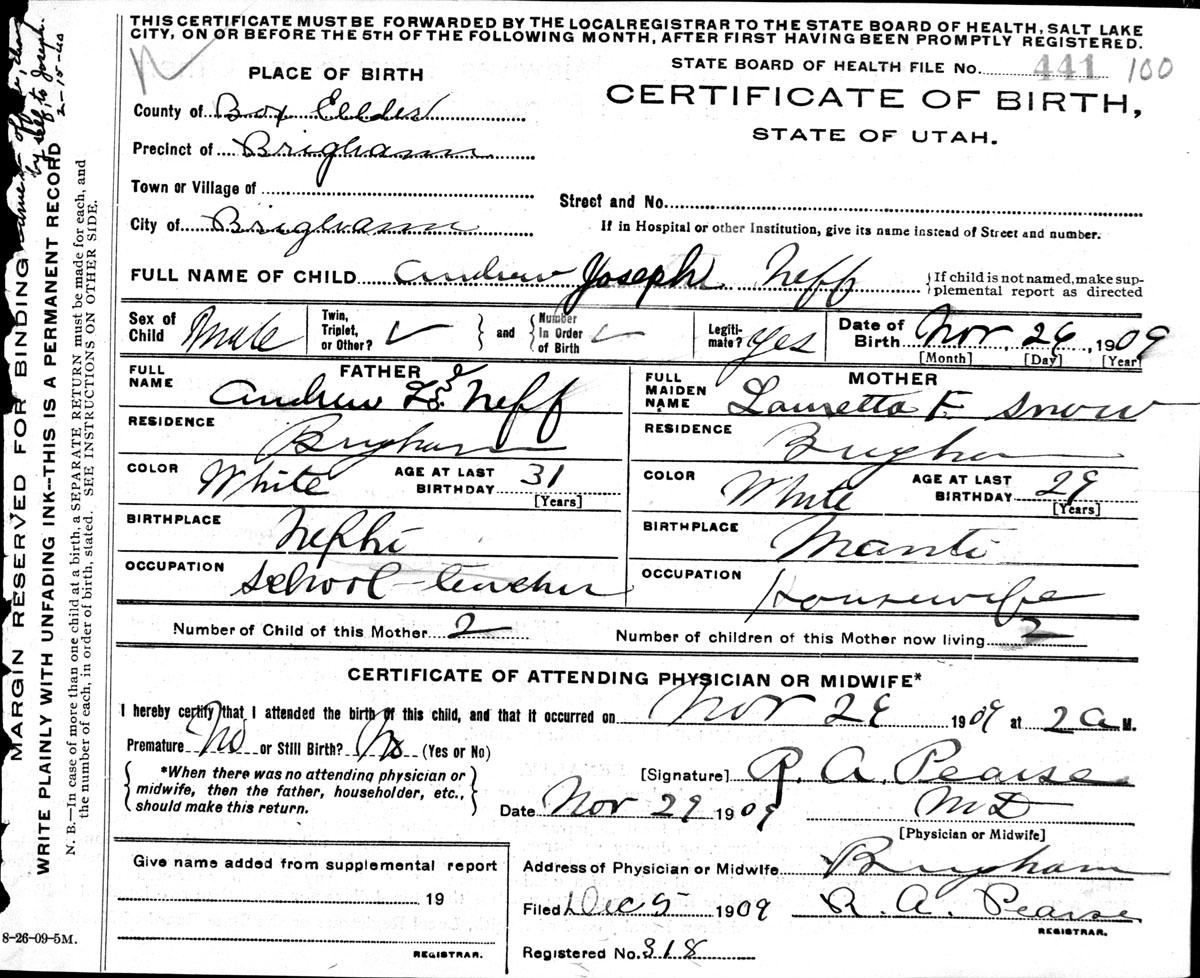 THIS CERTIFICATE MUST BE FORWARDED BY THE LOCAL REGISTRAR TO THE STATE BOARD OF HEALTH, SALT LAKE
CITY, ON OR BEFORE THE 5TH OF THE FOLLOWING MONTH, AFTER FIRST HAVING BEEN PROMPTLY REGISTERED.
STATE BOARD OF HEALTH FILE No. 441 100
PLACE OF BIRTH
CERTIFICATE OF BIRTH,
STATE OF UTAH.
County of Box Elder
Precinct of Brigham
Town or Village of
Street and No.
City of Brigham
If in Hospital or other Institution, give its name instead of Street and number.
FULL NAME OF CHILD Andrew Joseph Neff
{If child is not named, make sup-
plemental report as directed
Sex of Child Male
Twin, Triplet, or Other?
and
Number in Order of Birth
Legiti-mate? Yes
Date of Birth Nov 26, 1909
[Month] [Day] [Year]
FATHER
FULL NAME Andrew L. Neff
RESIDENCE Brigham
COLOR White
AGE AT LAST BIRTHDAY 31
[Years]
BIRTHPLACE Nephi
OCCUPATION School-teacher
MOTHER
FULL MAIDEN NAME Lauretta F. Snow
RESIDENCE Brigham
COLOR White
AGE AT LAST BIRTHDAY 29
[Years]
BIRTHPLACE Manti
OCCUPATION Housewife
Number of Child of this Mother 2
Number of children of this Mother now living 2
CERTIFICATE OF ATTENDING PHYSICIAN OR MIDWIFE*
I hereby certify that I attended the birth of this child, and that it occurred on Nov 26 1909 at 2 a M.
Premature No or Still Birth? No (Yes or No)
{*When there was no attending physician or
midwife, then the father, householder, etc.,
should make this return.}
[Signature] R. A. Pearse
Date Nov 29 1909 MD
[Physician or Midwife]
Give name added from supplemental report
19
REGISTRAR.
Address of Physician or Midwife Brigham
Filed Dec 5 1909 R. A. Pearse
REGISTRAR.
Registered No. 318
8-26-09-5M.
MARGIN RESERVED FOR BINDING
WRITE PLAINLY WITH UNFADING INK--THIS IS A PERMANENT RECORD
N. B.—In case of more than one child at a birth, a SEPARATE RETURN must be made for each, and
the number of each, in order of birth, stated. SEE INSTRUCTIONS ON OTHER SIDE.
by self, to Joseph